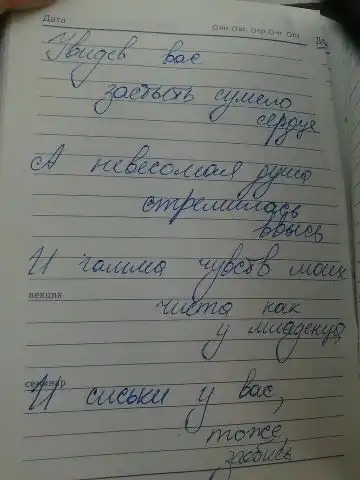 Дата
Увидев вас
застыть сумело
сердце
А невесомая душа
стремилась
ввысь
И гамма чувств моих
лекция
чиста как
у младенца
семинар
И сиськи у вас,
тоже,
заебись